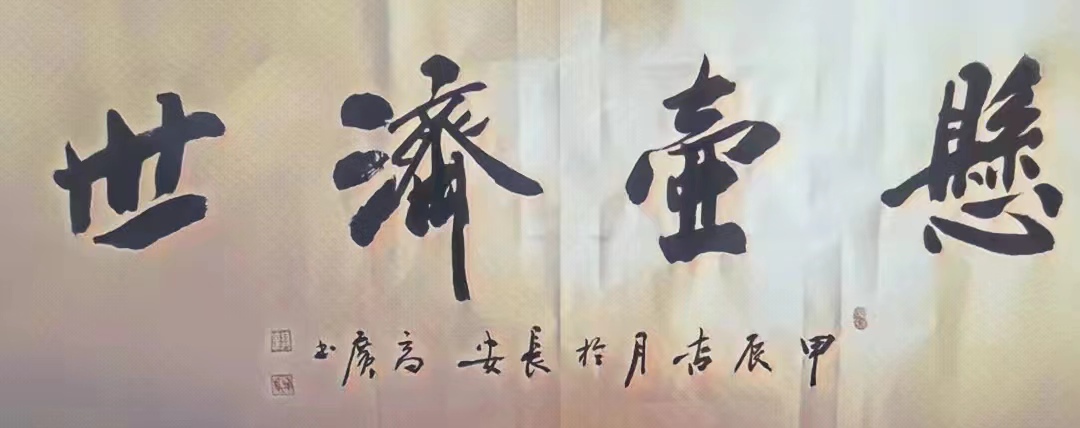 懸壺濟世
甲辰吉月於長安高廣书